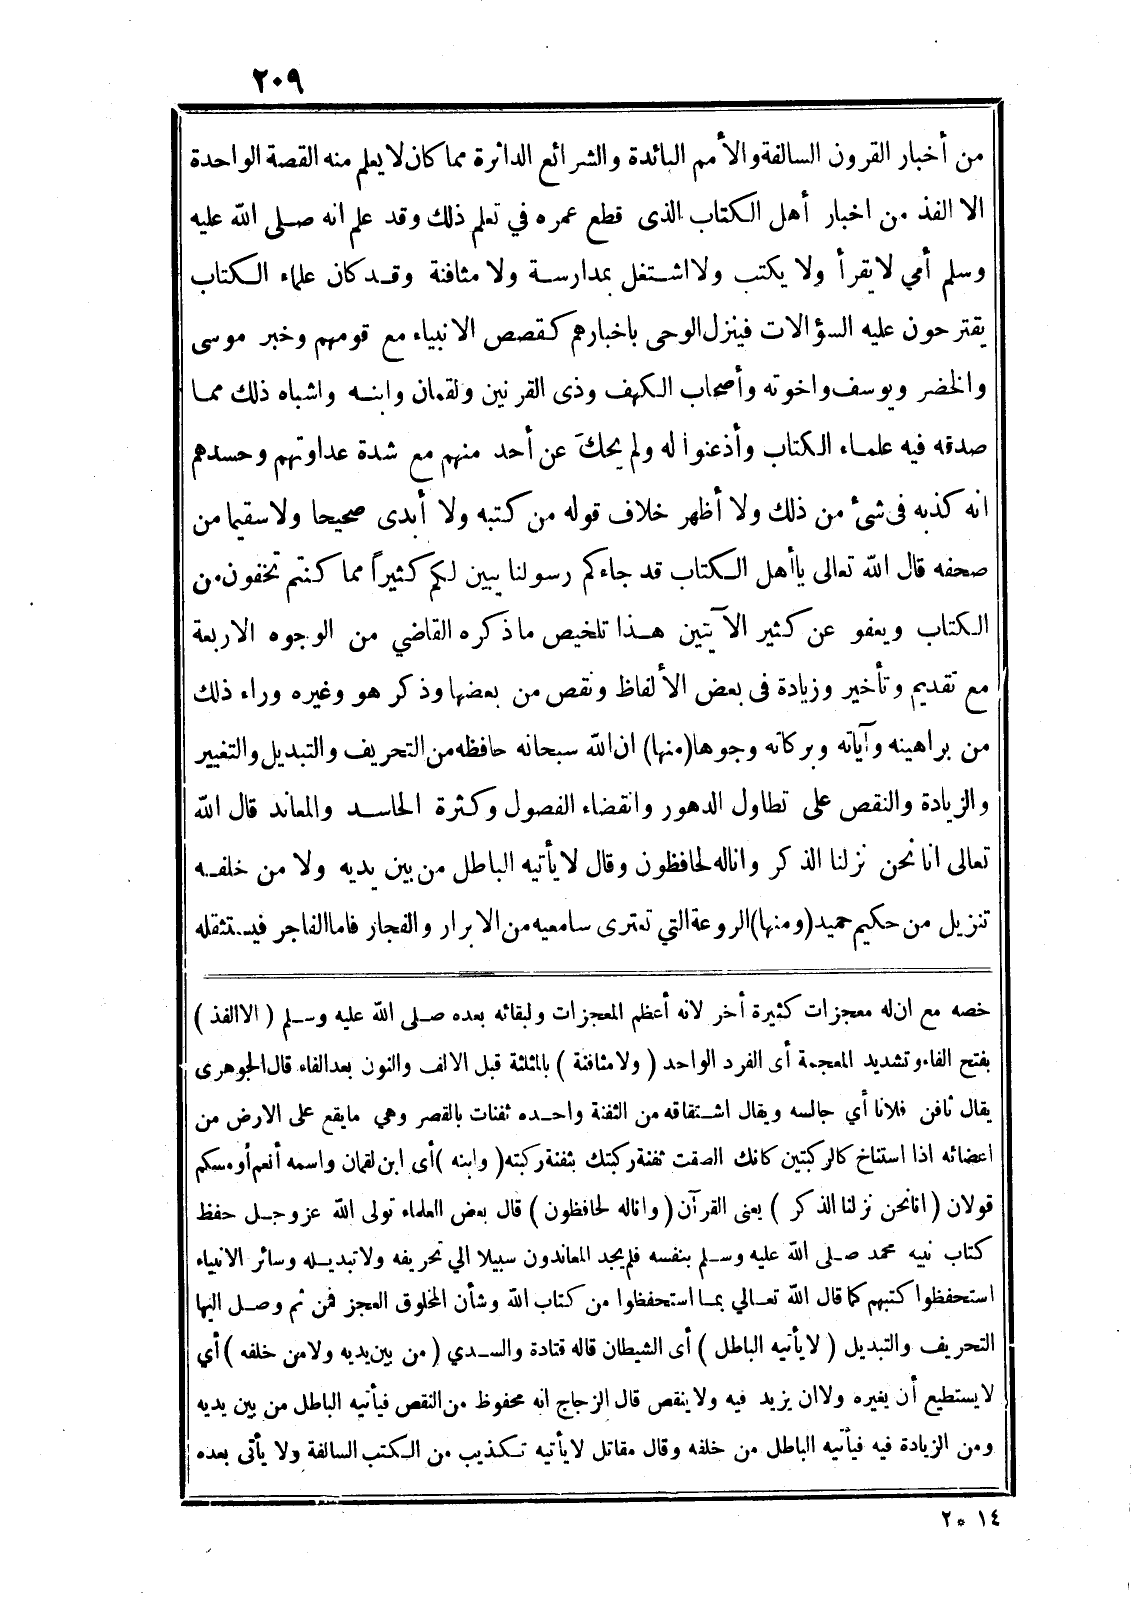 ٢٠٩
من أخبار القرون السالفة والأمم البائدة والشرائع الدائرة مما كان لا يعلم منه القصة الواحدة
الا الفذ من اخبار أهل الكتاب الذى قطع عمره في تعلم ذلك وقد علم انه صلى الله عليه
وسلم أمي لا يقرأ ولا يكتب ولا اشتغل بمدارسة ولا مثافنة وقد كان علماء الكتاب
يقترحون عليه السؤالات فينزل الوحى باخبارهم كقصص الانبياء مع قومهم وخبر موسى
والخضر ويوسف واخوته وأصحاب الكهف وذى القرنين ولقمان وابنه واشباه ذلك مما
صدقه فيه علماء الكتاب وأذعنوا له ولم يحكَ عن أحد منهم مع شدة عداوتهم وحسدهم
انه كذبه فى شئ من ذلك ولا أظهر خلاف قوله من كتبه ولا أبدى صحيحا ولا سقيما من
صحفه قال الله تعالى ياأهل الكتاب قد جاءكم رسولنا يبين لكم كثيراً مما كنتم تخفون من
الكتاب ويعفو عن كثير الآيتين هذا تلخيص ما ذكره القاضي من الوجوه الاربعة
مع تقديم وتأخير وزيادة فى بعض الألفاظ ونقص من بعضها وذكر هو وغيره وراء ذلك
من براهينه وآياته وبركاته وجوها (منها) ان الله سبحانه حافظه من التحريف والتبديل والتغيير
والزيادة والنقص على تطاول الدهور وانقضاء الفصول وكثرة الحاسد والمعاند قال الله
تعالى انا نحن نزلنا الذكر وانا له لحافظون وقال لا يأتيه الباطل من بين يديه ولا من خلفه
تنزيل من حكيم حميد (ومنها) الروعة التي تعترى سامعيه من الابرار والفجار فاما الفاجر فيستثقله
خصه مع ان له معجزات كثيرة أخر لانه أعظم المعجزات ولبقائه بعده صلى الله عليه وسلم ( الا الفذ )
بفتح الفاء وتشديد المعجمة أى الفرد الواحد ( ولا مثافنة ) بالمثلثة قبل الالف والنون بعد الفاء قال الجوهرى
يقال ثافن فلانا أي جالسه ويقال اشتقاقه من الثفنة واحده ثفنات بالقصر وهي ما يقع على الارض من
اعضائه اذا استناخ كالركبتين كانك الصقت ثفنة ركبتك بثفنة ركبته ( وابنه ) أى ابن لقمان واسمه أنعم أو مسكم
قولان ( انا نحن نزلنا الذكر ) يعنى القرآن ( وانا له لحافظون ) قال بعض العلماء تولى الله عز وجل حفظ
كتاب نبيه محمد صلى الله عليه وسلم بنفسه فلم يجد المعاندون سبيلا الي تحريفه ولا تبديله وسائر الانبياء
استحفظوا كتبهم كما قال الله تعالي بما استحفظوا من كتاب الله وشأن المخلوق العجز فمن ثم وصل اليها
التحريف والتبديل ( لا يأتيه الباطل ) أى الشيطان قاله قتادة والسدي ( من بين يديه ولا من خلفه ) أي
لا يستطيع أن يغيره ولا ان يزيد فيه ولا ينقص قال الزجاج انه محفوظ من النقص فيأتيه الباطل من بين يديه
ومن الزيادة فيه فيأتيه الباطل من خلفه وقال مقاتل لا يأتيه تكذيب من الكتب السالفة ولا يأتى بعده
١٤ * ٢